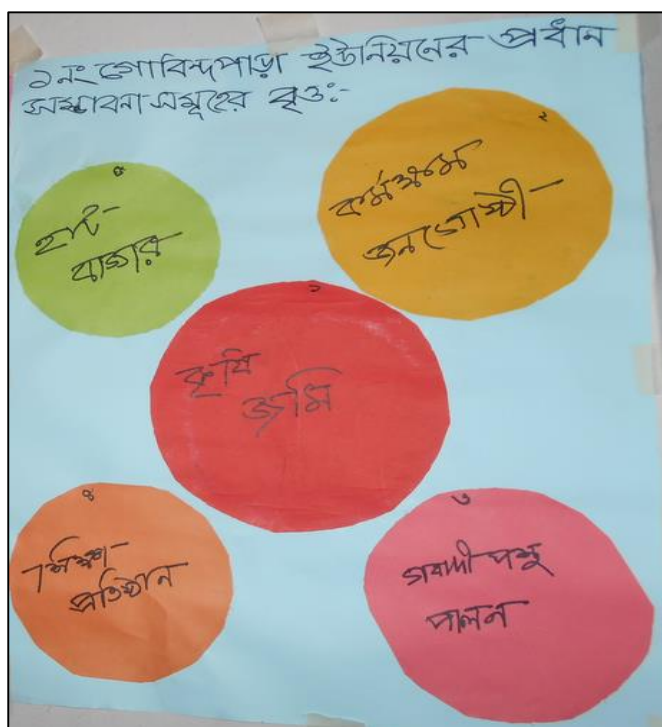 ১নং গোবিন্দপাড়া ইউনিয়নের প্রধান
সম্ভাবনা সমূহের বৃত্ত:-
৫
হাট-
বাজার
২
কর্মক্ষম
জনগোষ্ঠী-
১
কৃষি
জমি
৪
শিক্ষা-
প্রতিষ্ঠান
৩
গবাদী পশু
পালন